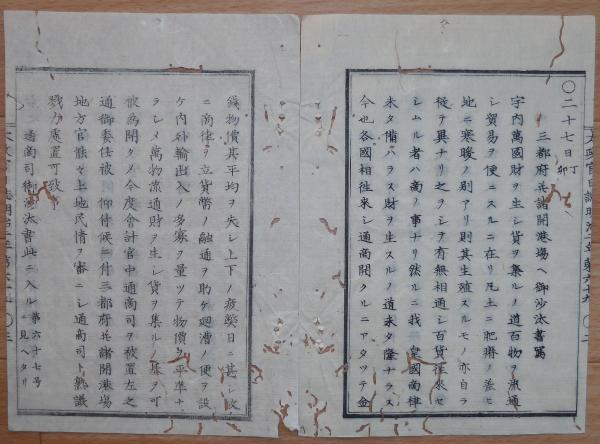 ○二十七日丁卯
三都府并諸開港場ヘ御沙汰書寫
宇内萬國財ヲ生シ貨ヲ集ルノ道百物ヲ流通
シ貿易ヲ便ニスルニ在リ凡土ニ肥瘠ノ差ヒ
地ニ寒暖ノ別アリ則其生殖スルモノ亦自ラ
從テ異ナリ之ヲシテ有無相通シ百貨往來セ
シムル者ハ商ノ事ナリ然ルニ我 皇國商律
未タ備ハラス財ヲ生スルノ道未タ隆ナラス
今也各國相往來シ通商開クルニアタツテ金
錢物價其平均ヲ失シ上下ノ疲弊日ニ甚シ故
ニ商律ヲ立貨幣ノ融通ヲ助ケ廻漕ノ便ヲ設
ケ内外輸出入ノ多寡ヲ量ツテ物價ヲ平準ナ
ラシメ萬物流通財ヲ生シ貨ヲ集ルノ基ヲ可
被為開タメ今度會計官中通商司ヲ被置左之
通御委任被 仰付候ニ付三都府并諸開港場
地方官能々土地民情ヲ審ニシ通商司ト熟議
戮力處置可致事
通商司御沙汰書此ニ入ル第六十七号ニ見ヘタリ